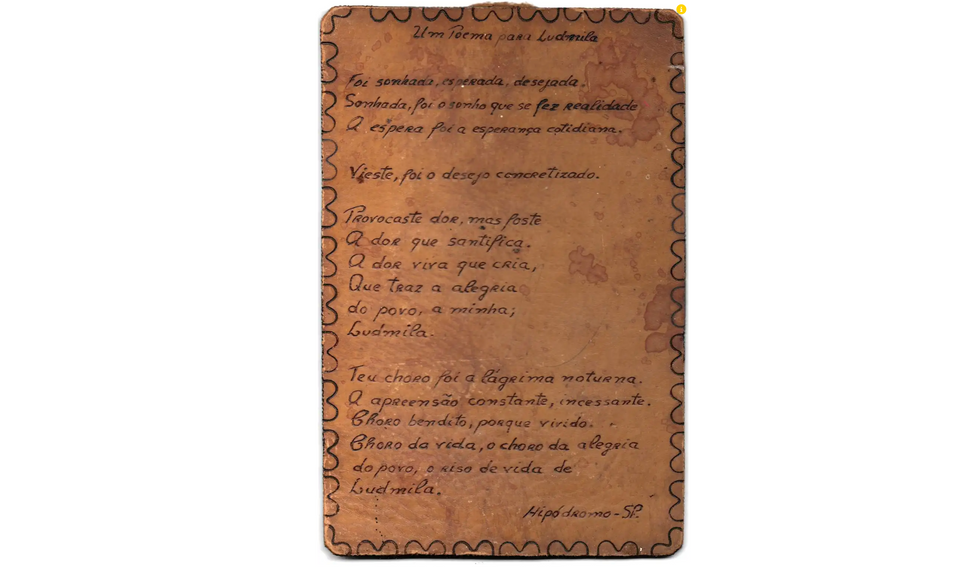 Um Poema para Ludmila
Foi sonhada, esperada, desejada.
Sonhada, foi o sonho que se fez realidade
A espera foi a esperança cotidiana.
Vieste, foi o desejo concretizado.
Provocaste dor, mas foste
A dor que santifica.
A dor viva que cria,
Que traz a alegria
do povo, a minha;
Ludmila.
Teu choro foi a lágrima noturna.
A apreensão constante, incessante.
Choro bendito, porque vivido.
Choro da vida, o choro da alegria
do povo, o riso de vida de
Ludmila.
Hipódromo-SP.